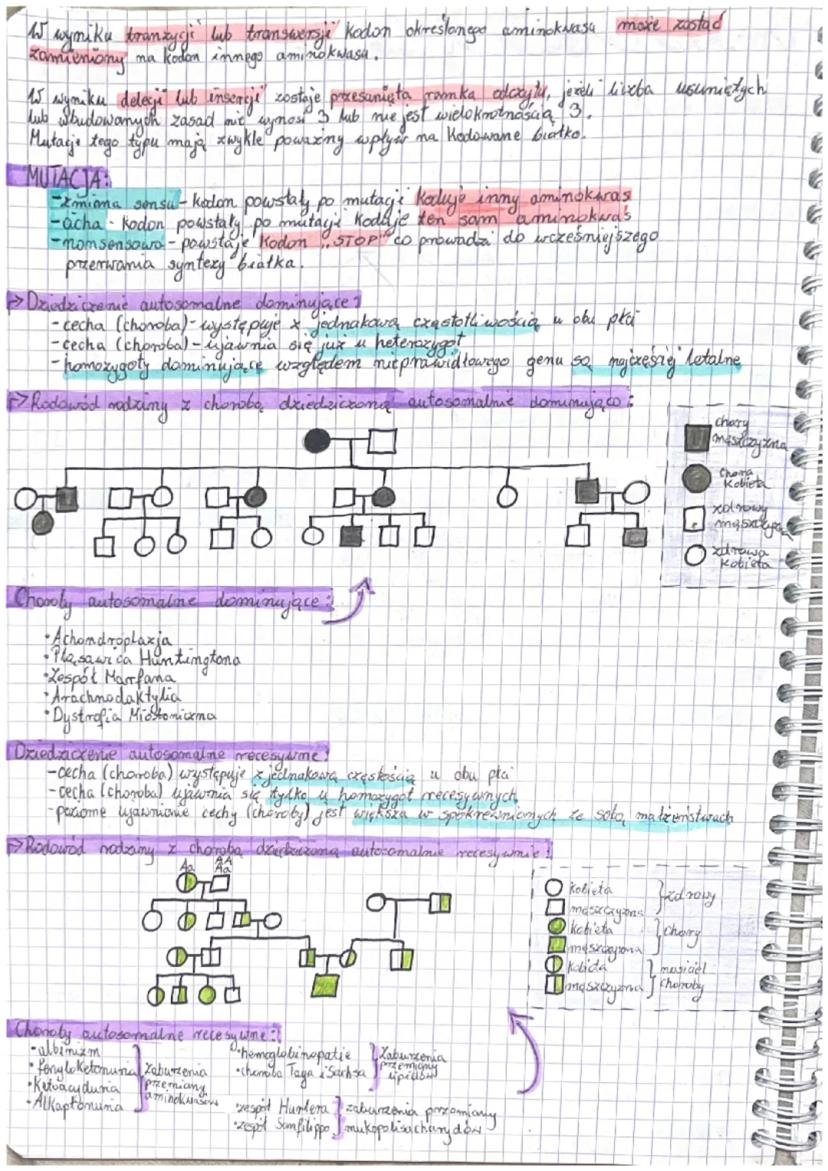 W wyniku tranzycji lub transwersji kodon określonego aminokwasu może zostać
zamieniony na kodon innego aminokwasu.
W wyniku delecji lub insercji zostaje przesunięta ramka odczytu, jeżeli liczba usuniętych
lub wbudowanych zasad nie wynosi 3 lub nie jest wielokrotnością 3.
Mutacje tego typu mają zwykle poważny wpływ na kodowane białko.
MUTACJA:
-zmiana sensu - kodon powstały po mutacji koduje inny aminokwas
-cicha - kodon powstały po mutacji koduje ten sam aminokwas
-nonsensowa - powstaje kodon "STOP" co prowadzi do wcześniejszego
przerwania syntezy białka.
-> Dziedziczenie autosomalne dominujące:
-cecha (choroba) - występuje z jednakową częstotliwością u obu płci
-cecha (choroba) - ujawnia się już u heterozygot
-homozygoty dominujące względem nieprawidłowego genu są najczęściej letalne
-> Rodowód rodziny z chorobą dziedziczoną autosomalnie dominująco:
chory
mężczyzna
chora
kobieta
zdrowy
mężczyzna
zdrowa
kobieta
Choroby autosomalne dominujące:
•Achondroplazja
•Pląsawica Huntingtona
•Zespół Marfana
•Arachnodaktylia
•Dystrofia Miotoniczna
Dziedziczenie autosomalne recesywne:
-cecha (choroba) występuje z jednakową częstością u obu płci
-cecha (choroba) ujawnia się tylko u homozygot recesywnych
-poziome ujawnianie cechy (choroby) jest większa w spokrewnionych ze sobą małżeństwach
-> Rodowód rodziny z chorobą dziedziczoną autosomalnie recesywnie:
Aa
AA
Aa
kobieta
mężczyzna
zdrowy
kobieta
mężczyzna
chory
kobieta
mężczyzna
nosiciel
choroby
Choroby autosomalne recesywne:
•albinizm
•fenyloketonuria
•Ketoaciduria
•Alkaptonuria
zaburzenia
przemiany
aminokwasów
•hemoglobinopatie
•choroba Taya i Sachsa
Zaburzenia
przemiany
lipidów
•zespół Hurlera
•zespół Sanfilippo
zaburzenia przemiany
mukopolisacharydów